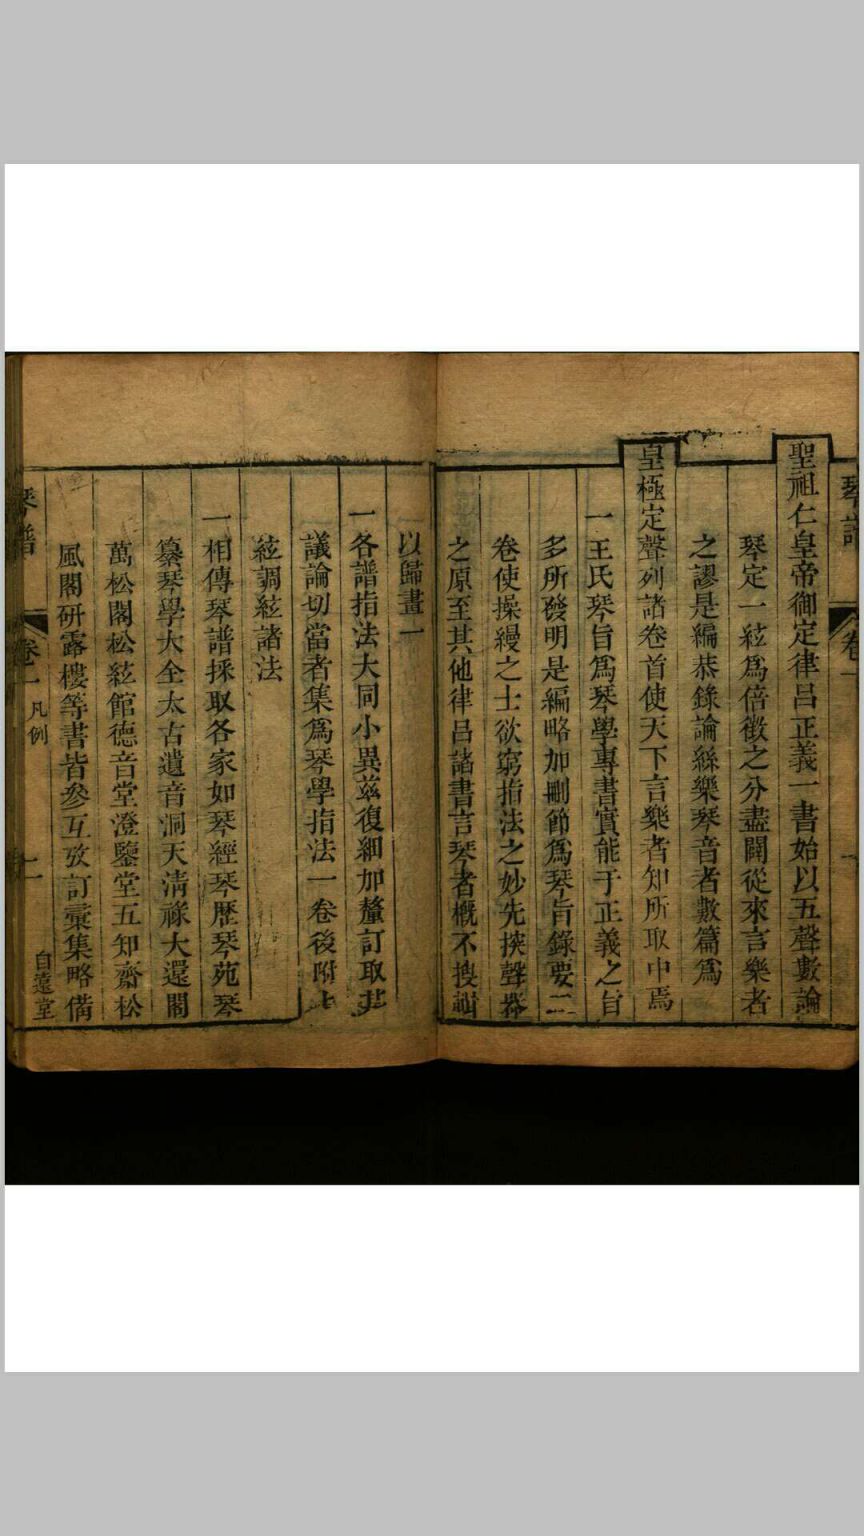 聖祖仁皇帝御定律呂正義一書始以五聲數論
琴定一絃爲倍徵之分盡闢從來言樂者
之謬是編恭錄論絲樂琴音者數篇爲
皇極定聲列諸卷首使天下言樂者知所取中焉
一王氏琴旨爲琴學專書實能于正義之旨
多所發明是編略加刪節爲琴旨錄要二
卷使操縵之士欲窮指法之妙先挾聲器
之原至其他律呂諸書言琴者概不搜
以歸畫一
一各譜指法大同小異茲復細加釐訂取其
議論切當者集爲琴學指法一卷後附上
絃調絃諸法
一相傳琴譜採取各家如琴經琴歷琴苑琴
纂琴學大全太古遺音洞天清祿大還閣
萬松閣松絃館德音堂澄鑒堂五知齋松
風閣研露樓等書皆參互攷訂彙集略備
琴譜 卷一 凡例 自遠堂